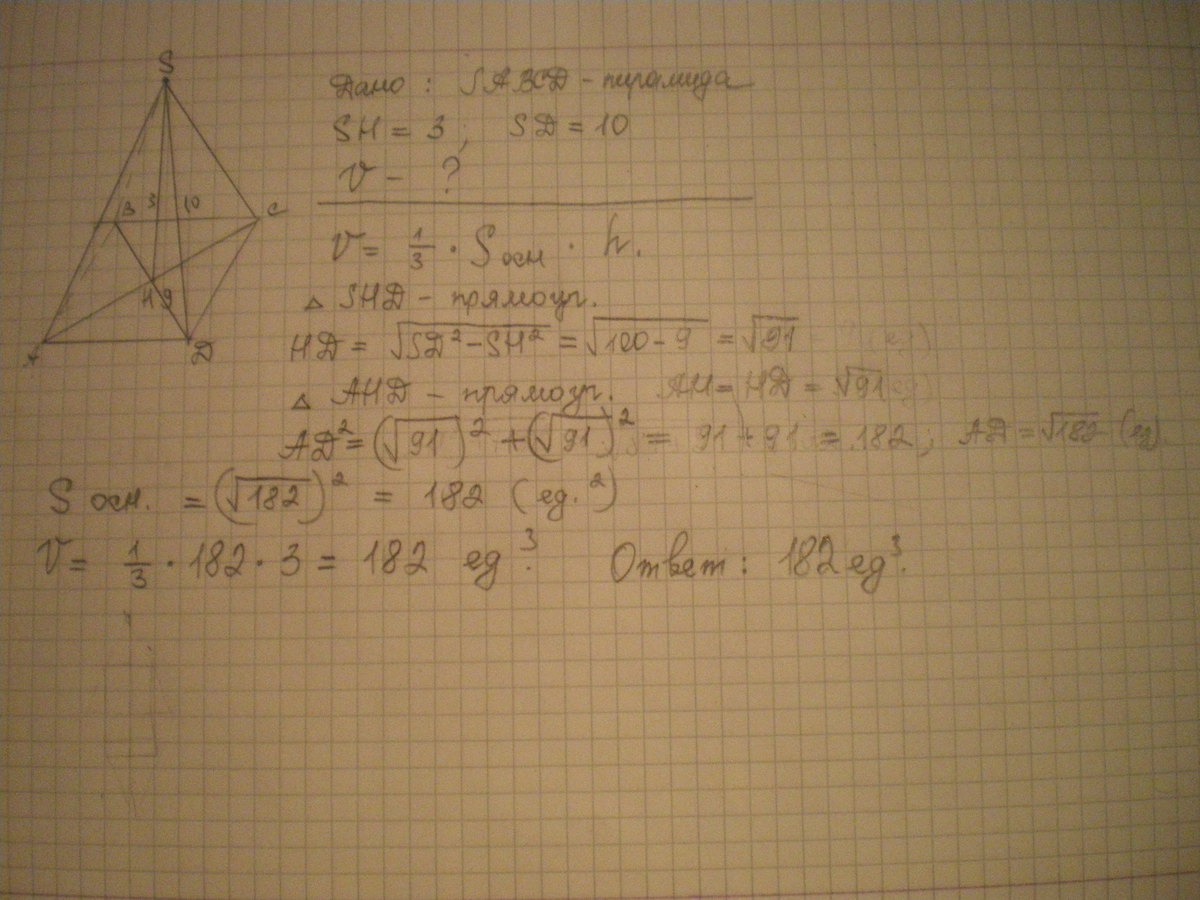 S
Дано : SABCD - пирамида
SH = 3 ; SD = 10
V - ?
B 3 10 C
V = 1/3 · S осн · h.
△ SHD - прямоуг.
H 9
HD = √(SD² - SH²) = √(100 - 9) = √91
A D
△ AHD - прямоуг. AH = HD = √91
AD² = (√91)² + (√91)² = 91 + 91 = 182 ; AD = √182 (ед)
S осн. = (√182)² = 182 (ед.²)
V = 1/3 · 182 · 3 = 182 ед³. Ответ : 182 ед³.